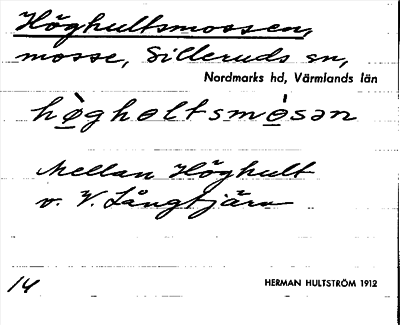 Höghultsmossen,
mosse, Silleruds sn,
Nordmarks hd, Värmlands län
hò̱gholtsmò̱sən
Mellan Höghult
v. V. Långtjärn
14
HERMAN HULTSTRÖM 1912